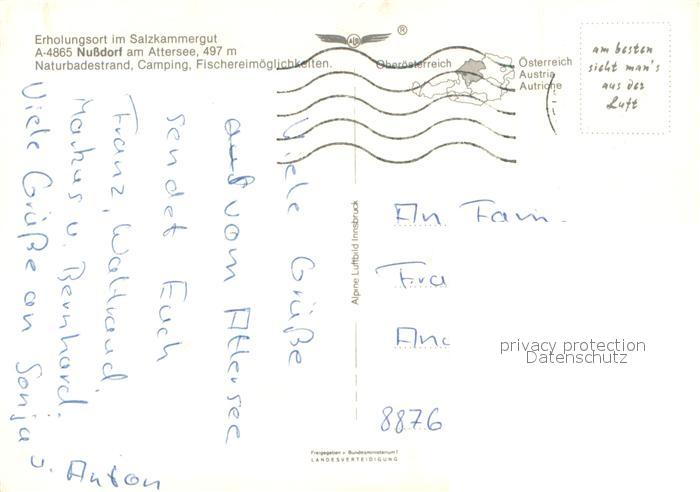 Erholungsort im Salzkammergut
A-4865 Nußdorf am Attersee, 497 m
Naturbadestrand, Camping, Fischereimöglichkeiten.
®
Oberösterreich
Österreich
Austria
Autriche
am besten
sieht man's
aus der
Luft
Viele Grüße
auf vom Attersee
sendet Euch
Franz, Waltraud,
Markus u. Bernhard.
Viele Grüße an Sonja
u. Anton
Alpine Luftbild Innsbruck
An Fam.
Fra
An
8876
privacy protection
Datenschutz
Freigegeben v. Bundesministerium f.
LANDESVERTEIDIGUNG